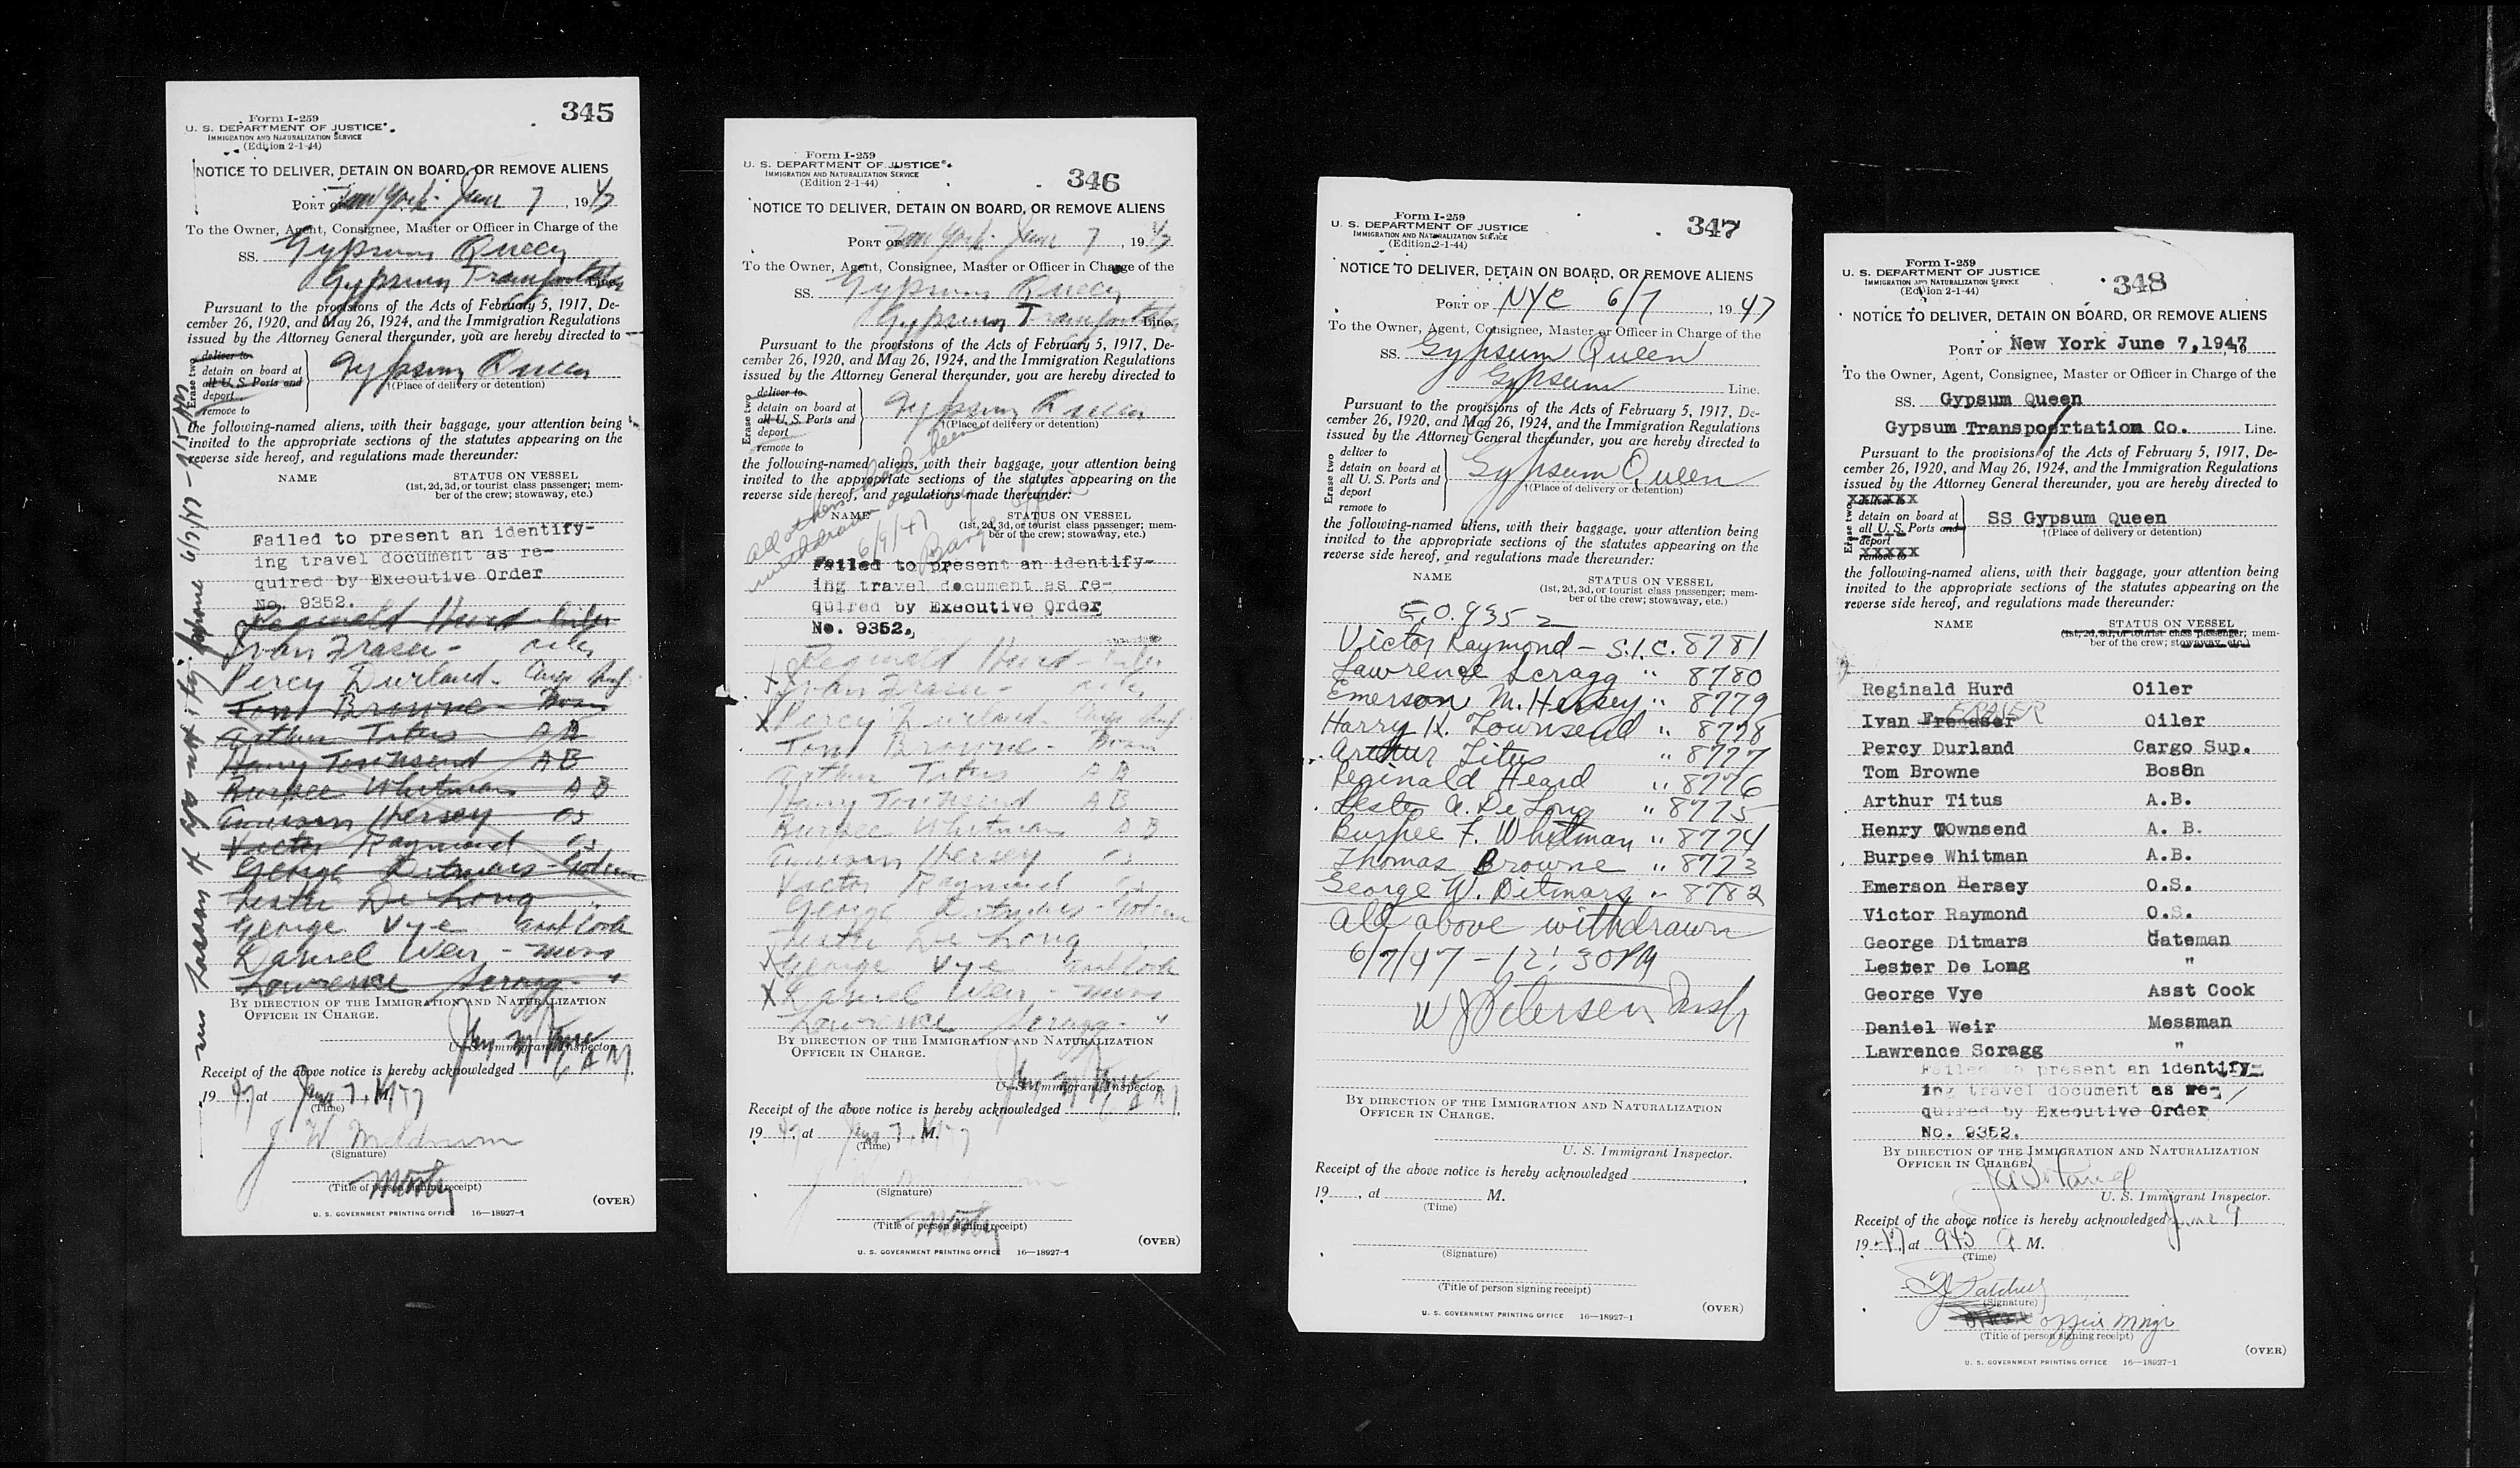 345
Form I-259
U. S. DEPARTMENT OF JUSTICE
IMMIGRATION AND NATURALIZATION SERVICE
(Edition 2-1-44)
NOTICE TO DELIVER, DETAIN ON BOARD, OR REMOVE ALIENS
PORT OF New York June 7, 1947
To the Owner, Agent, Consignee, Master or Officer in Charge of the
SS. Gypsum Queen
Gypsum Transportation Line.
Pursuant to the provisions of the Acts of February 5, 1917, De-
cember 26, 1920, and May 26, 1924, and the Immigration Regulations
issued by the Attorney General thereunder, you are hereby directed to
Erase two
deliver to
detain on board at
all U. S. Ports and
deport
remove to
Gypsum Queen
†(Place of delivery or detention)
the following-named aliens, with their baggage, your attention being
invited to the appropriate sections of the statutes appearing on the
reverse side hereof, and regulations made thereunder:
NAME STATUS ON VESSEL
(1st, 2d, 3d, or tourist class passenger; mem-
ber of the crew; stowaway, etc.)
Failed to present an identify-
ing travel document as re-
quired by Executive Order
No. 9352.
Reginald Hurd Oiler
Ivan Fraser - oiler
Percy Durland - Cargo Sup
Tom Browne - Bosn
Arthur Titus AB
Harry Townsend AB
Burpee Whitman AB
Emerson Hersey OS
Victor Raymond OS
George Ditmars -
Lester De Long "
George Vye asst Cook
Daniel Weir - mess
Lawrence Scragg - "
BY DIRECTION OF THE IMMIGRATION AND NATURALIZATION
OFFICER IN CHARGE.
U. S. Immigrant Inspector.
Receipt of the above notice is hereby acknowledged
1947, at June 7, 1947 M.
(Time)
(Signature)
(Title of person signing receipt)
(OVER)
U. S. GOVERNMENT PRINTING OFFICE 16—18927-1
346
Form I-259
U. S. DEPARTMENT OF JUSTICE
IMMIGRATION AND NATURALIZATION SERVICE
(Edition 2-1-44)
NOTICE TO DELIVER, DETAIN ON BOARD, OR REMOVE ALIENS
PORT OF New York June 7, 1947
To the Owner, Agent, Consignee, Master or Officer in Charge of the
SS. Gypsum Queen
Gypsum Transportation Line.
Pursuant to the provisions of the Acts of February 5, 1917, De-
cember 26, 1920, and May 26, 1924, and the Immigration Regulations
issued by the Attorney General thereunder, you are hereby directed to
Erase two
deliver to
detain on board at
all U. S. Ports and
deport
remove to
Gypsum Queen
†(Place of delivery or detention)
the following-named aliens, with their baggage, your attention being
invited to the appropriate sections of the statutes appearing on the
reverse side hereof, and regulations made thereunder:
all others have been
withdrawn
6/9/47 Barge Office
NAME STATUS ON VESSEL
(1st, 2d, 3d, or tourist class passenger; mem-
ber of the crew; stowaway, etc.)
Failed to present an identify-
ing travel document as re-
quired by Executive Order
No. 9352.
Reginald Hurd - Oiler
X Ivan Fraser - oiler
X Percy Durland - Cargo Sup
Tom Browne - Bosn
Arthur Titus AB
Harry Townsend AB
Burpee Whitman AB
Emerson Hersey OS
Victor Raymond OS
George Ditmars -
Lester De Long "
X George Vye asst Cook
X Daniel Weir - mess
Lawrence Scragg - "
BY DIRECTION OF THE IMMIGRATION AND NATURALIZATION
OFFICER IN CHARGE.
U. S. Immigrant Inspector.
Receipt of the above notice is hereby acknowledged
1947, at June 7, 1947 M.
(Time)
(Signature)
(Title of person signing receipt)
(OVER)
U. S. GOVERNMENT PRINTING OFFICE 16—18927-1
347
Form I-259
U. S. DEPARTMENT OF JUSTICE
IMMIGRATION AND NATURALIZATION SERVICE
(Edition 2-1-44)
NOTICE TO DELIVER, DETAIN ON BOARD, OR REMOVE ALIENS
PORT OF NYC 6/7, 1947
To the Owner, Agent, Consignee, Master or Officer in Charge of the
SS. Gypsum Queen
Gypsum Line.
Pursuant to the provisions of the Acts of February 5, 1917, De-
cember 26, 1920, and May 26, 1924, and the Immigration Regulations
issued by the Attorney General thereunder, you are hereby directed to
Erase two
deliver to
detain on board at
all U. S. Ports and
deport
remove to
Gypsum Queen
†(Place of delivery or detention)
the following-named aliens, with their baggage, your attention being
invited to the appropriate sections of the statutes appearing on the
reverse side hereof, and regulations made thereunder:
NAME STATUS ON VESSEL
(1st, 2d, 3d, or tourist class passenger; mem-
ber of the crew; stowaway, etc.)
E.O. 9352
Victor Raymond - S.I.C. 8781
Lawrence Scragg " 8780
Emerson M. Hersey " 8779
Harry K. Townsend " 8778
Arthur Titus " 8777
Reginald Heard " 8776
Lester A. De Long " 8775
Burpee F. Whitman " 8774
Thomas Browne " 8773
George W. Ditmars " 8782
All above withdrawn
6/7/47 - 12:30 PM
W J Petersen Insp
BY DIRECTION OF THE IMMIGRATION AND NATURALIZATION
OFFICER IN CHARGE.
U. S. Immigrant Inspector.
Receipt of the above notice is hereby acknowledged
19 , at M.
(Time)
(Signature)
(Title of person signing receipt)
(OVER)
U. S. GOVERNMENT PRINTING OFFICE 16—18927-1
348
Form I-259
U. S. DEPARTMENT OF JUSTICE
IMMIGRATION AND NATURALIZATION SERVICE
(Edition 2-1-44)
NOTICE TO DELIVER, DETAIN ON BOARD, OR REMOVE ALIENS
PORT OF New York June 7,1947, 19
To the Owner, Agent, Consignee, Master or Officer in Charge of the
SS. Gypsum Queen
Gypsum Transpoertation Co. Line.
Pursuant to the provisions of the Acts of February 5, 1917, De-
cember 26, 1920, and May 26, 1924, and the Immigration Regulations
issued by the Attorney General thereunder, you are hereby directed to
Erase two
deliver to
detain on board at
all U. S. Ports and
deport
remove to
SS Gypsum Queen
†(Place of delivery or detention)
the following-named aliens, with their baggage, your attention being
invited to the appropriate sections of the statutes appearing on the
reverse side hereof, and regulations made thereunder:
NAME STATUS ON VESSEL
(1st, 2d, 3d, or tourist class passenger; mem-
ber of the crew; stowaway, etc.)
Reginald Hurd Oiler
Ivan FRASER Oiler
Percy Durland Cargo Sup.
Tom Browne Bos8n
Arthur Titus A.B.
Henry TOwnsend A. B.
Burpee Whitman A.B.
Emerson Hersey O.S.
Victor Raymond O.S.
George Ditmars Gateman
Lester De Long "
George Vye Asst Cook
Daniel Weir Messman
Lawrence Scragg "
Failed to present an identify-
ing travel document as re-
quired by Executive Order
No. 9352.
BY DIRECTION OF THE IMMIGRATION AND NATURALIZATION
OFFICER IN CHARGE.
U. S. Immigrant Inspector.
Receipt of the above notice is hereby acknowledged June 9
1947, at 945 A M.
(Time)
(Signature)
office Mngr
(Title of person signing receipt)
(OVER)
U. S. GOVERNMENT PRINTING OFFICE 16—18927-1